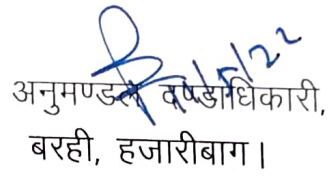 अनुमण्डल दण्डाधिकारी,
बरही, हजारीबाग।